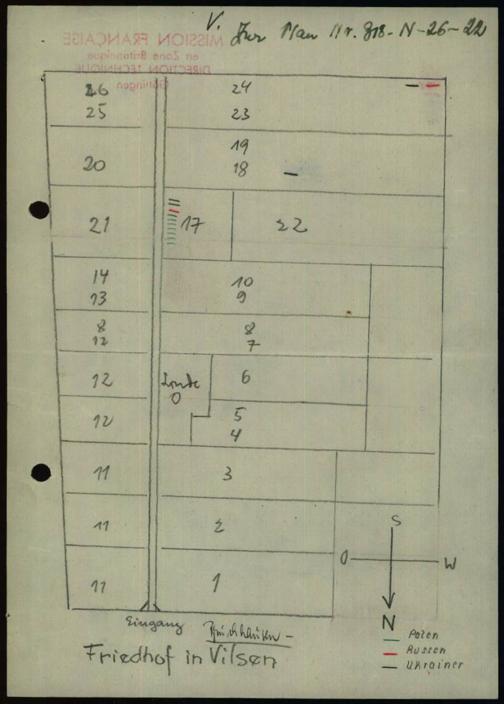 V. Zur Plan Nr. 818-N-26-22
MISSION FRANÇAISE
en Zone Britannique
DIRECTION TECHNIQUE
Göttingen
26 24
25 23
19
20 18
21 17 22
14 10
13 9
8 8
12 7
12 6
0
12 5
4
11 3
11 2
11 1
S
O W
N
Eingang
Bruchhausen-
Friedhof in Vilsen
Polen
Russen
Ukrainer